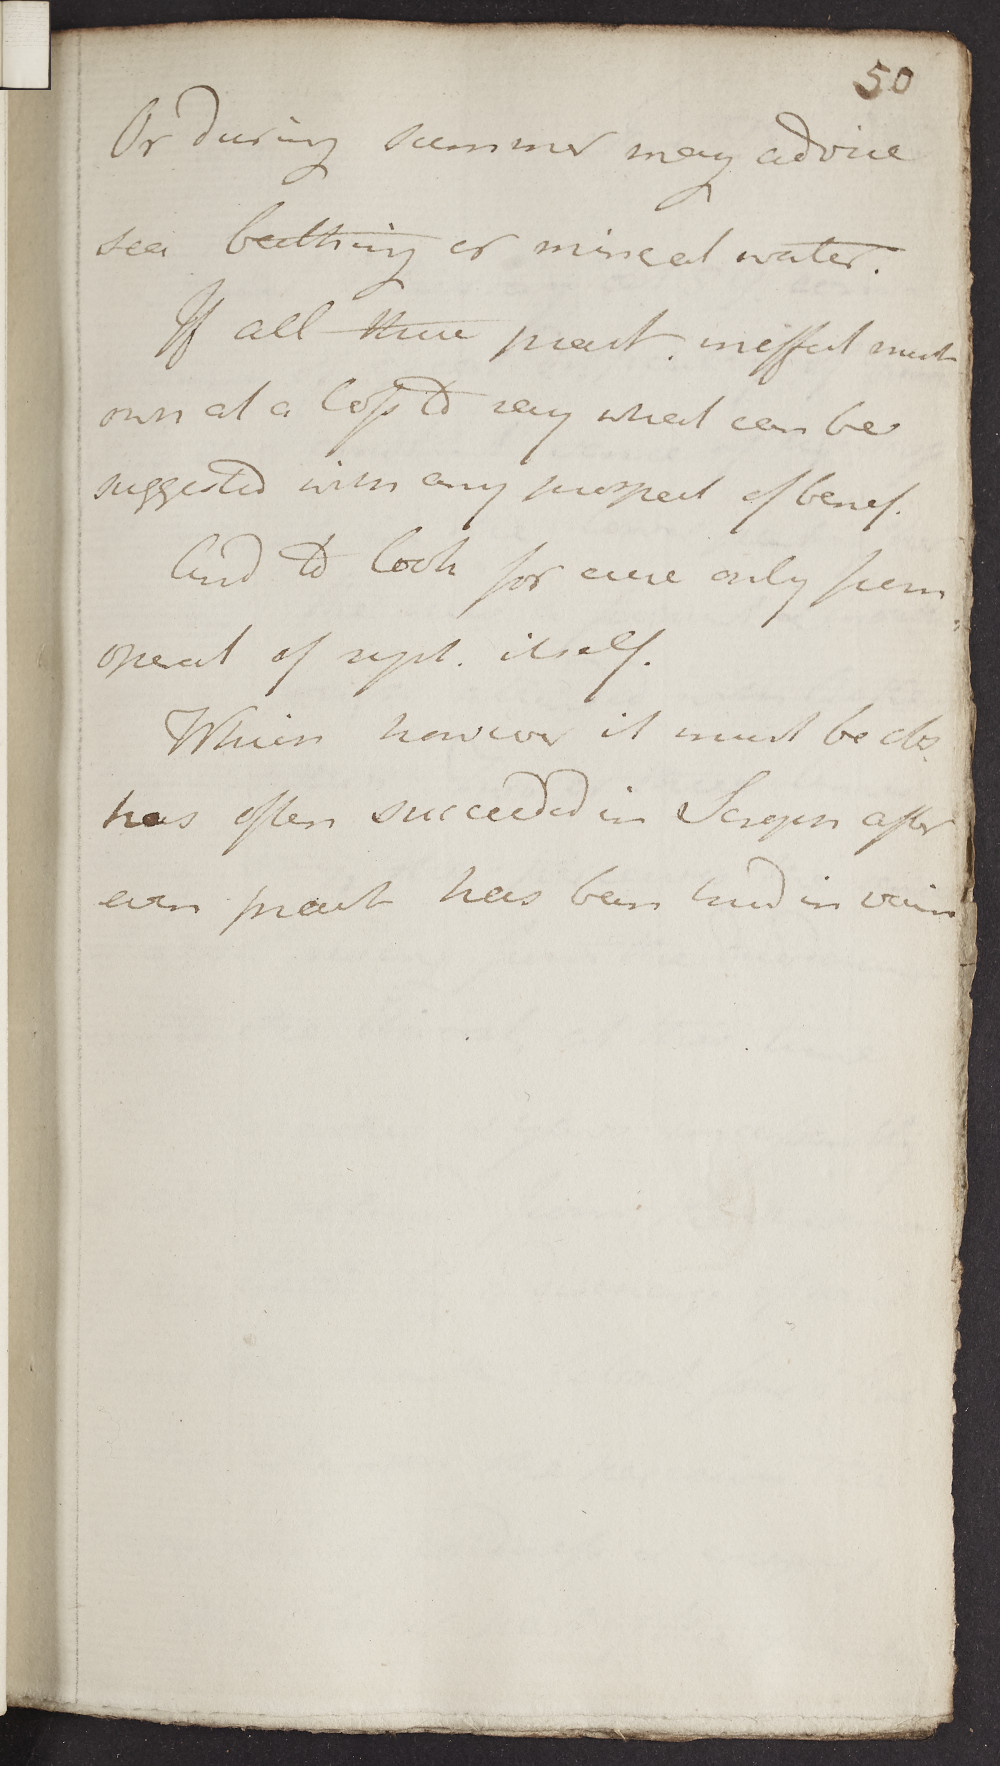 50
Or during summer may advise
sea bathing or mineral water.
If all these pract. ineffect must
own at a loss to say what can be
suggested with any prospect of benef.
And to look for cure only from
operat of syst. itself.
Which however it must be obs.
has often succeeded in after
even pract has been tried in vain